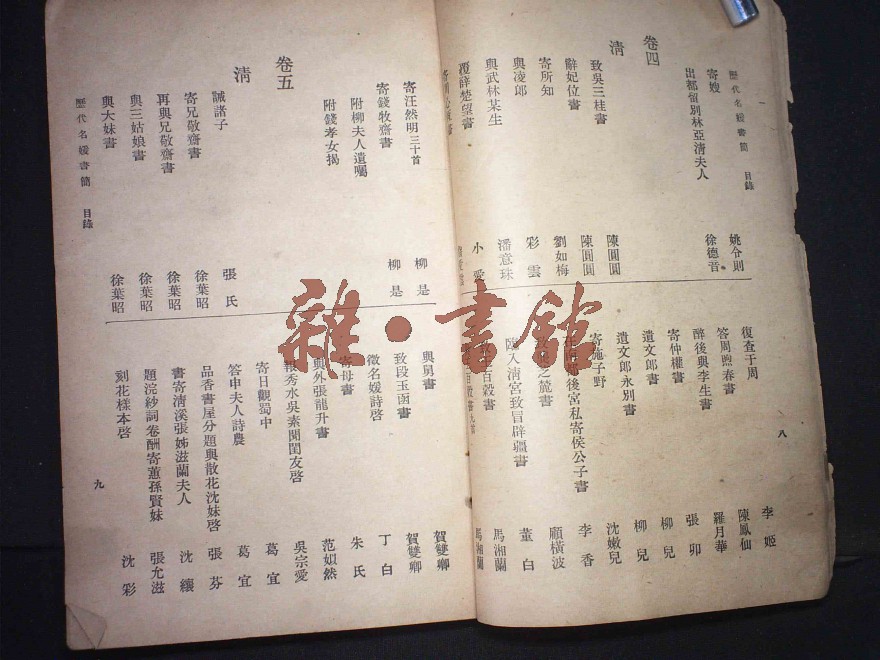 歷代名媛書簡 目錄
八
寄嫂 姚令則
出都留別林亞清夫人 徐德音
卷四
清
致吳三桂書 陳圓圓
辭妃位書 陳圓圓
寄所知 劉如梅
與凌郎 彩雲
與武林某生 潘意珠
覆薛楚望書 小愛
復查于周 李姬
答周煦春書 陳鳳仙
醉後與李生書 羅月華
寄仲權書 張卯
遺文郎書 柳兒
遺文郎永別書 柳兒
寄施子野 沈嫩兒
後宮私寄侯公子書 李香
之麓書 顧橫波
臨入清宮致冒辟疆書 董白
百穀書 馬湘蘭
馬湘蘭
寄汪然明三十首 柳是
寄錢牧齋書 柳是
附柳夫人遺囑
附錢孝女揭
卷五
清
誡諸子 張氏
寄兄敬齋書 徐葉昭
再與兄敬齋書 徐葉昭
與三姑娘書 徐葉昭
與大妹書 徐葉昭
歷代名媛書簡 目錄
與舅書 賀雙卿
致段玉函書 賀雙卿
徵名媛詩啓 丁白
寄母書 朱氏
與外張龍升書 范姒然
秀水吳素聞閨友啓 吳宗愛
寄日觀蜀中 葛宜
答申夫人詩農 葛宜
品香書屋分題與散花沈妹啓 張芬
書寄清溪張姊滋蘭夫人 沈纕
題浣紗詞卷酬寄蕙孫賢妹 張允滋
刻花樣本啓 沈彩
九
雜·書館